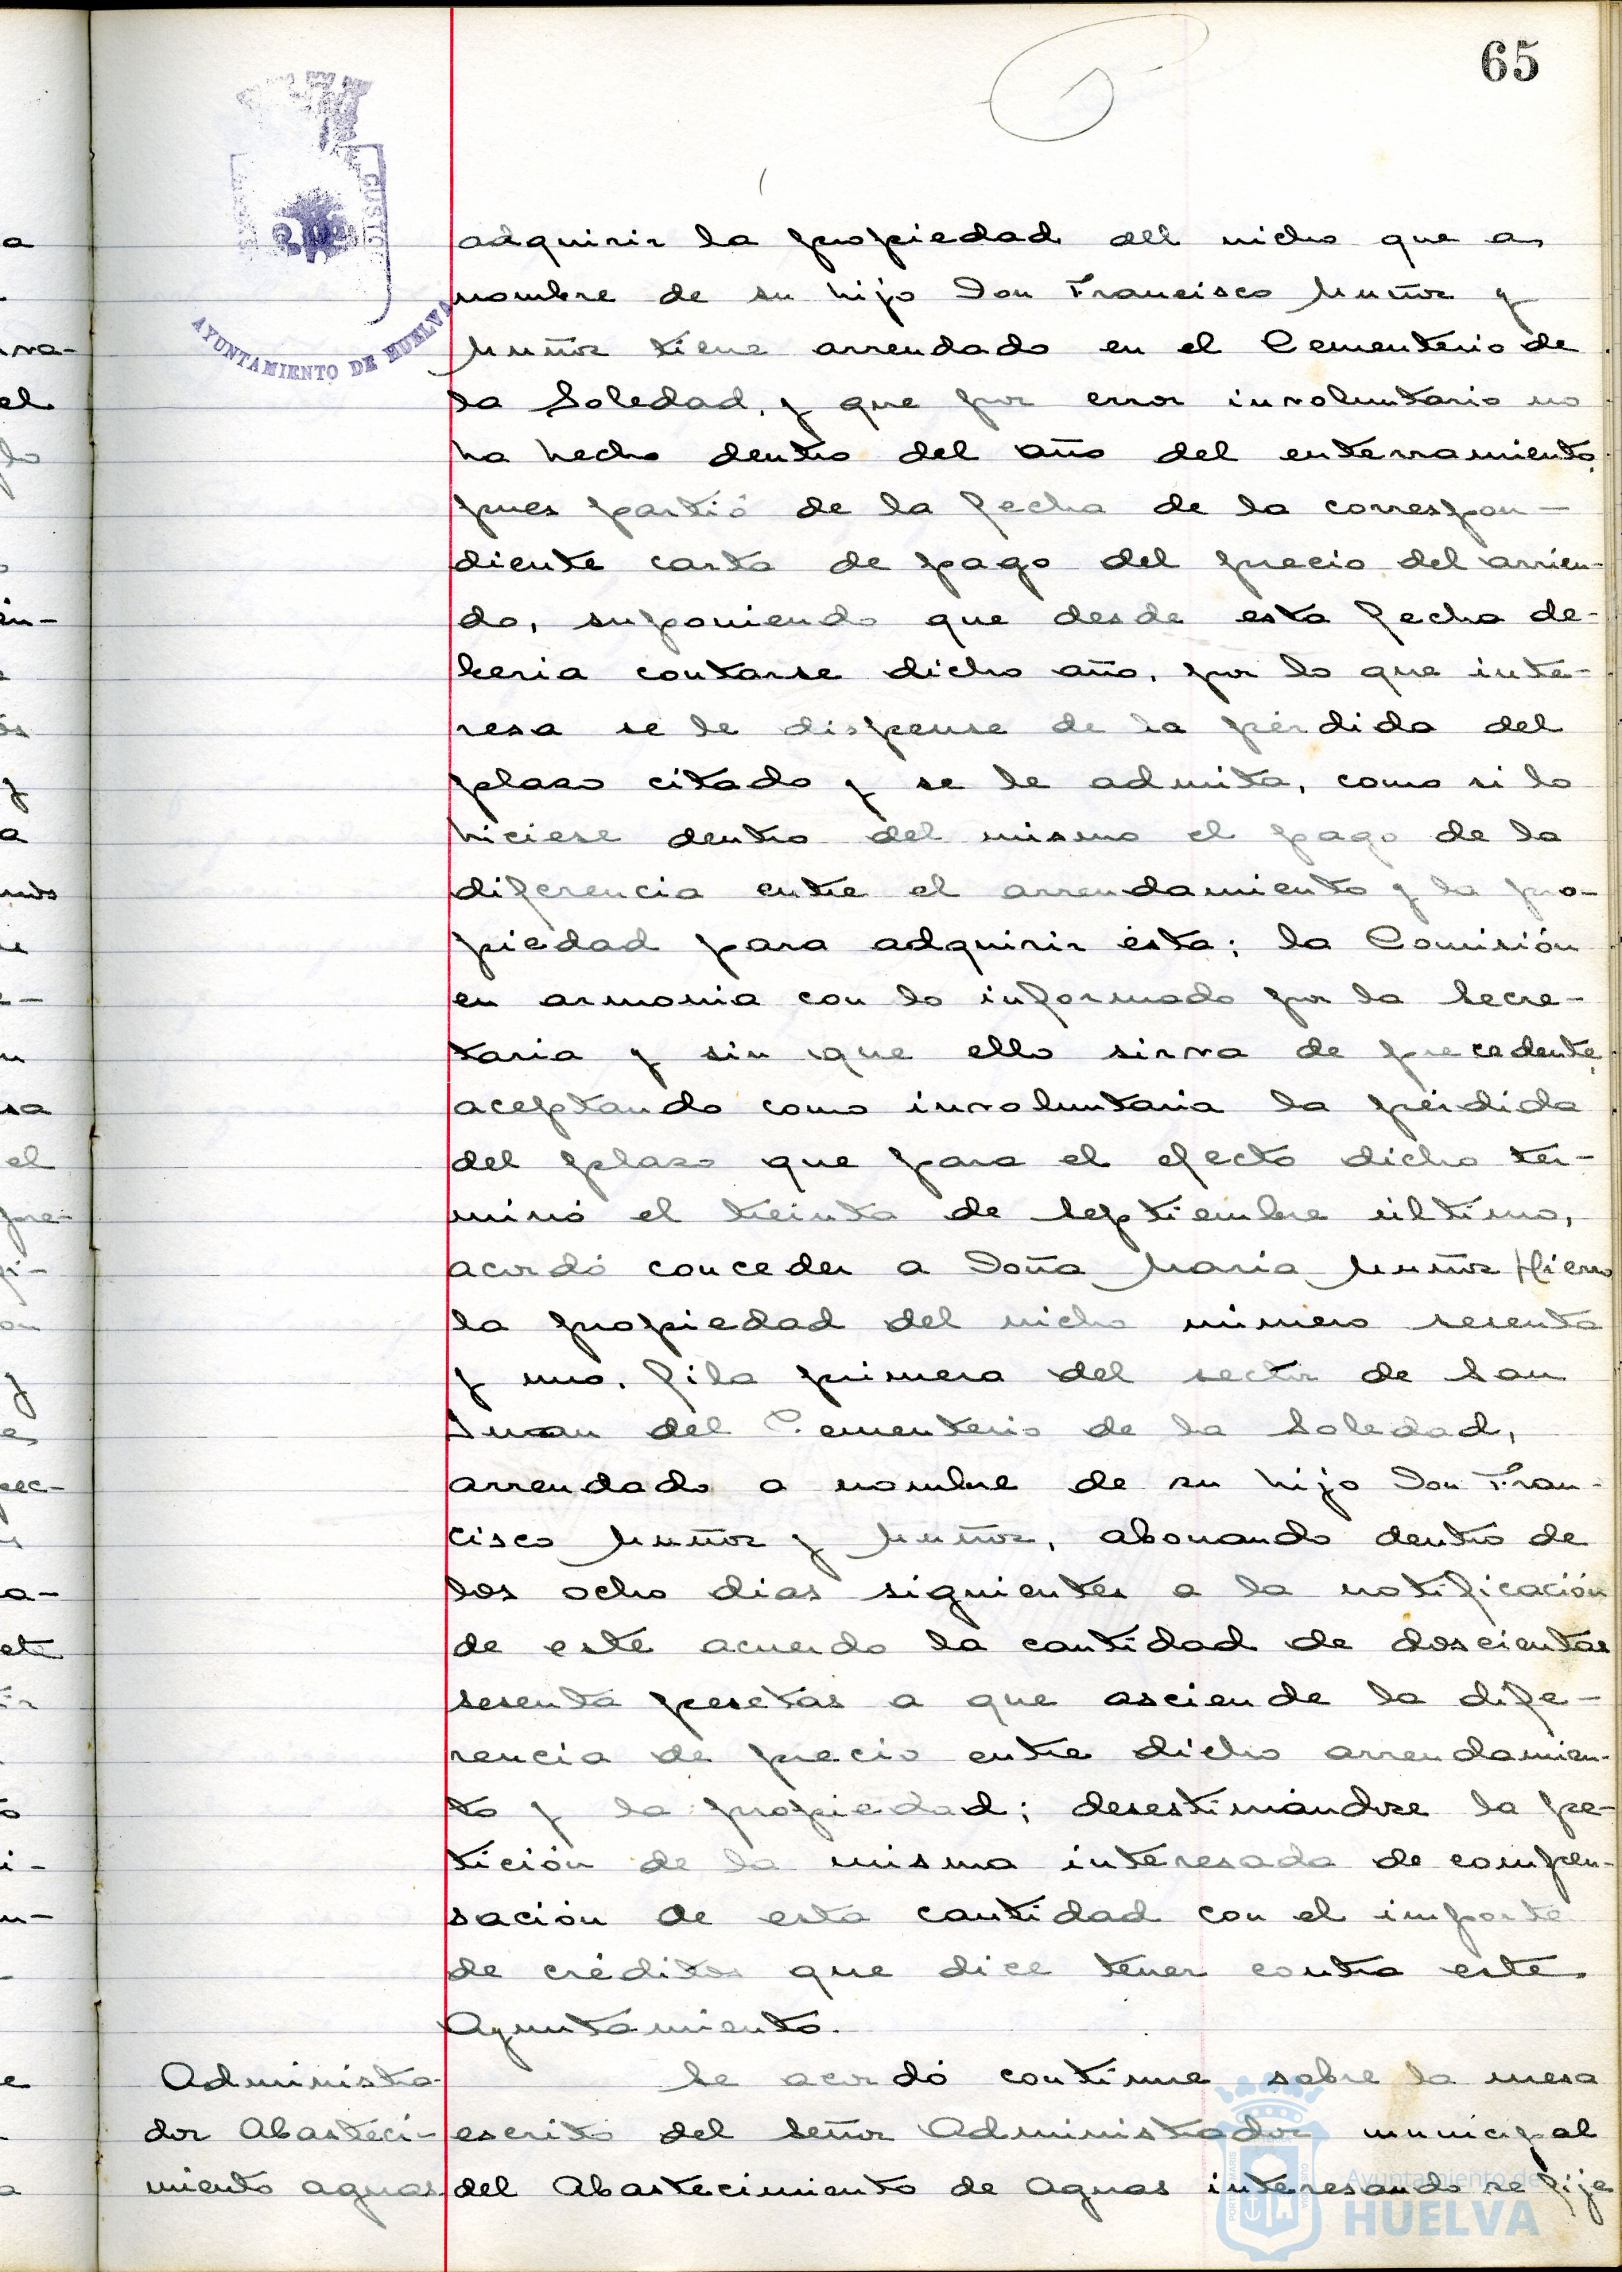 65
AYUNTAMIENTO DE HUELVA
adquirir la propiedad del nicho que a
nombre de su hijo Don Francisco Muñoz y
Muñoz tiene arrendado en el Cementerio de
la Soledad, y que por error involuntario no
ha hecho dentro del año del enterramiento,
pues partió de la fecha de la correspon-
diente carta de pago del precio del arrien-
do, suponiendo que desde esta fecha de-
beria contarse dicho año, por lo que inte-
resa se le dispense de la pérdida del
plazo citado y se le admita, como si lo
hiciese dentro del mismo el pago de la
diferencia entre el arrendamiento y la pro-
piedad para adquirir ésta; la Comisión
en armonia con lo informado por la Secre-
taria y sin que ello sirva de precedente,
aceptando como involuntaria la pérdida
del plazo que para el efecto dicho ter-
minó el treinta de Septiembre último,
acordó conceder a Doña Maria Muñoz Hierro
la propiedad del nicho número sesenta
y uno, fila primera del sector de San
Juan del Cementerio de la Soledad,
arrendado a nombre de su hijo Don Fran-
cisco Muñoz y Muñoz, abonando dentro de
los ocho dias siguientes a la notificación
de este acuerdo la cantidad de doscientas
sesenta pesetas a que asciende la dife-
rencia de precio entre dicho arrendamien-
to y la propiedad; desestimándose la pe-
tición de la misma interesada de compen-
sación de esta cantidad con el importe
de créditos que dice tener contra este
Ayuntamiento.
Administra-
dor Abasteci-
miento aguas.
Se acordó continue sobre la mesa
escrito del Señor Administrador municipal
del Abastecimiento de Aguas interesando se fije
Ayuntamiento de
HUELVA